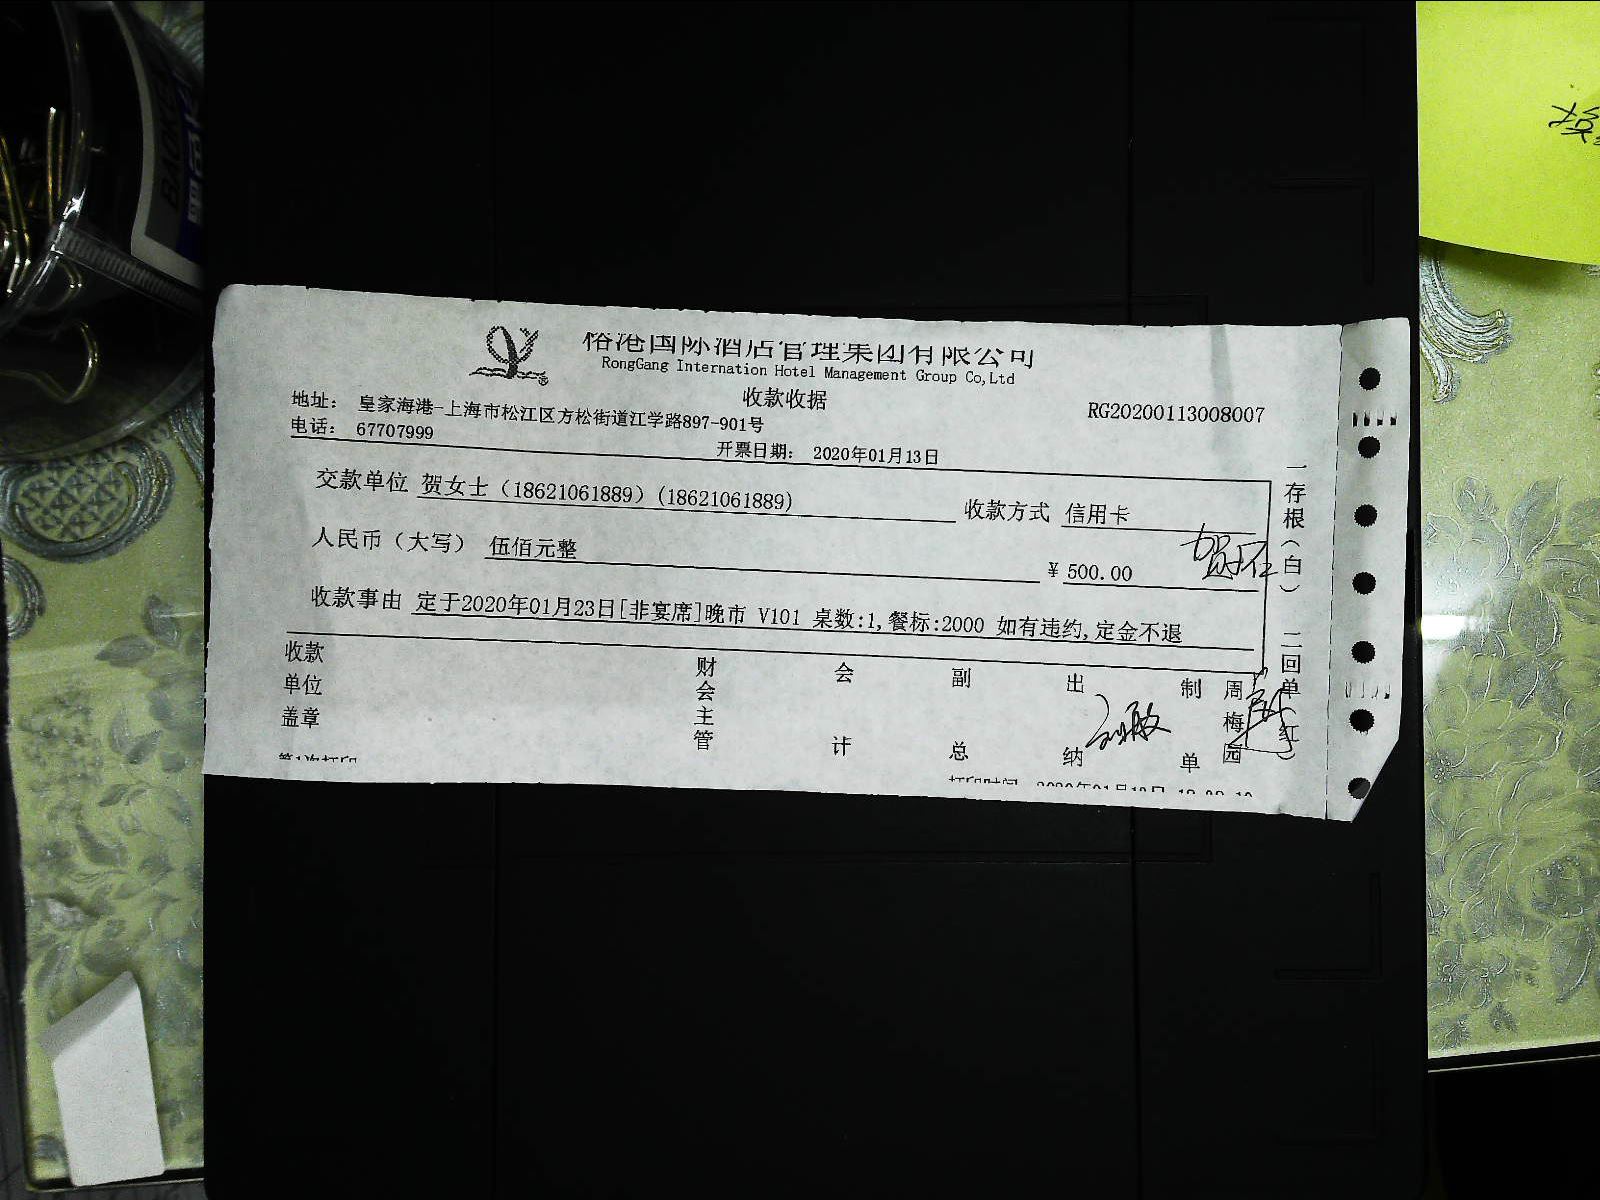 榕港国际酒店管理集团有限公司
RongGang Internation Hotel Management Group Co,Ltd
收款收据
地址： 皇家海港-上海市松江区方松街道江学路897-901号
RG20200113008007
电话： 67707999
开票日期： 2020年01月13日
交款单位 贺女士（18621061889）(18621061889)
收款方式 信用卡
人民币（大写） 伍佰元整
¥ 500.00
收款事由 定于2020年01月23日[非宴席]晚市 V101 桌数:1,餐标:2000 如有违约,定金不退
一存根（白） 二回单（红）
收款单位盖章
财会主管
会计
副总
出纳
刘敏
制单
周梅园
第1次打印
打印时间
BAOKE